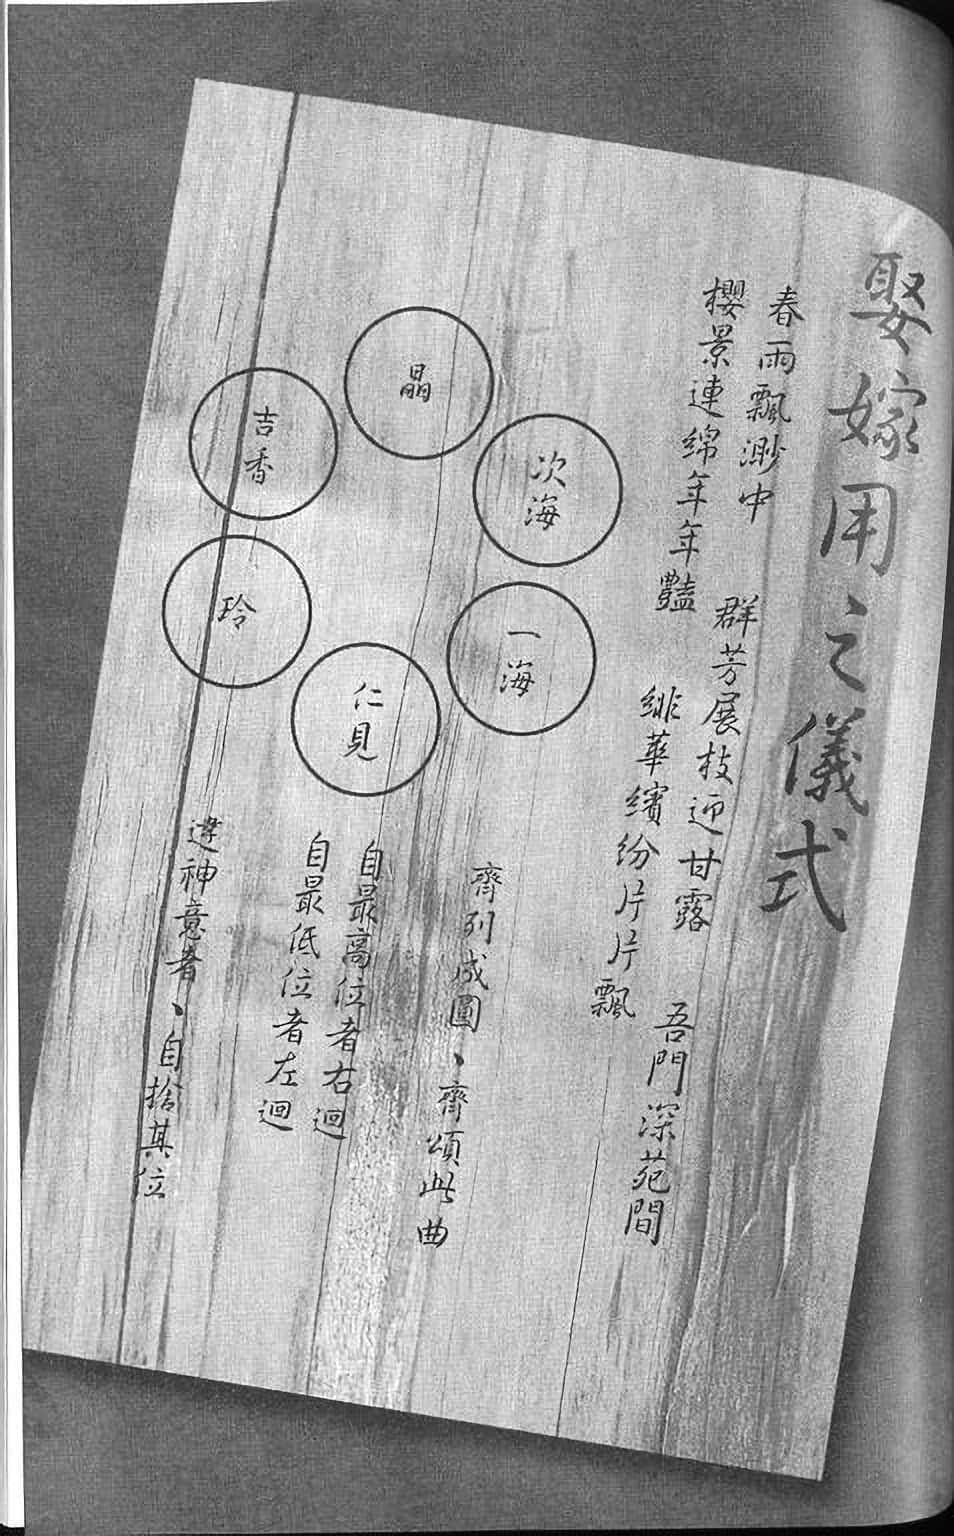 娶嫁用之儀式
春雨飄渺中
群芳展枝迎甘露
吾門深苑間
櫻景連綿年年豔
緋華繽紛片片飄
晶
次海
一海
仁見
玲
吉香
齊列成圓、齊頌此曲
自最高位者右迴
自最低位者左迴
違神意者、自捨其位